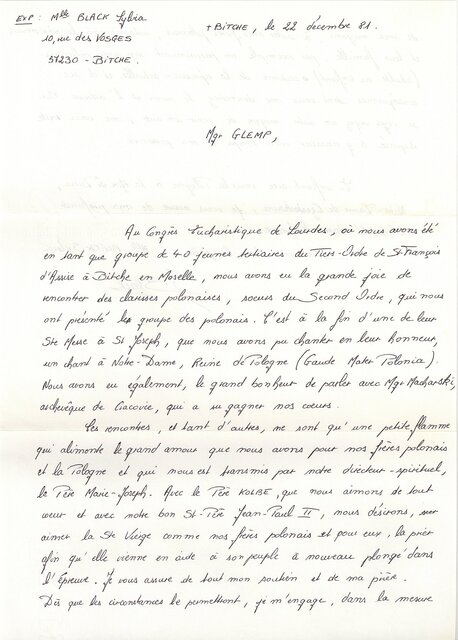 EXP : Mlle BLACK Sylvia
10, rue des VOSGES
57230 - BITCHE.
+ BITCHE, le 22 décembre 81.
Mgr GLEMP,
Au Congrès Eucharistique de Lourdes, où nous avons été
en tant que groupe de 40 jeunes tertiaires du Tiers-Ordre de St François
d'Assise à Bitche en Moselle, nous avons eu la grande joie de
rencontrer des clarisses polonaises, soeurs du Second Ordre, qui nous
ont présenté les groupe des polonais. C'est à la fin d'une de leur
Ste Messe à St Joseph, que nous avons pu chanter en leur honneur,
un chant à Notre-Dame, Reine de Pologne (Gaude Mater Polonia).
Nous avons eu également, le grand bonheur de parler avec Mgr Macharski,
archevêque de Cracovie, qui a su gagner nos coeurs.
Ces rencontres, et tant d'autres, ne sont qu'une petite flamme
qui alimente le grand amour que nous avons pour nos frères polonais
et la Pologne et qui nous est transmis par notre directeur-spirituel,
le Père Marie-Joseph. Avec le Père KOLBE, que nous aimons de tout
coeur et avec notre bon St-Père Jean-Paul II, nous désirons,
aimer la Ste Vierge comme nos frères polonais et pour eux, la prier
afin qu'elle vienne en aide à son peuple à nouveau plongé dans
l'épreuve. Je vous assure de tout mon soutien et de ma prière.
Dès que les circonstances le permettront, je m'engage, dans la mesure